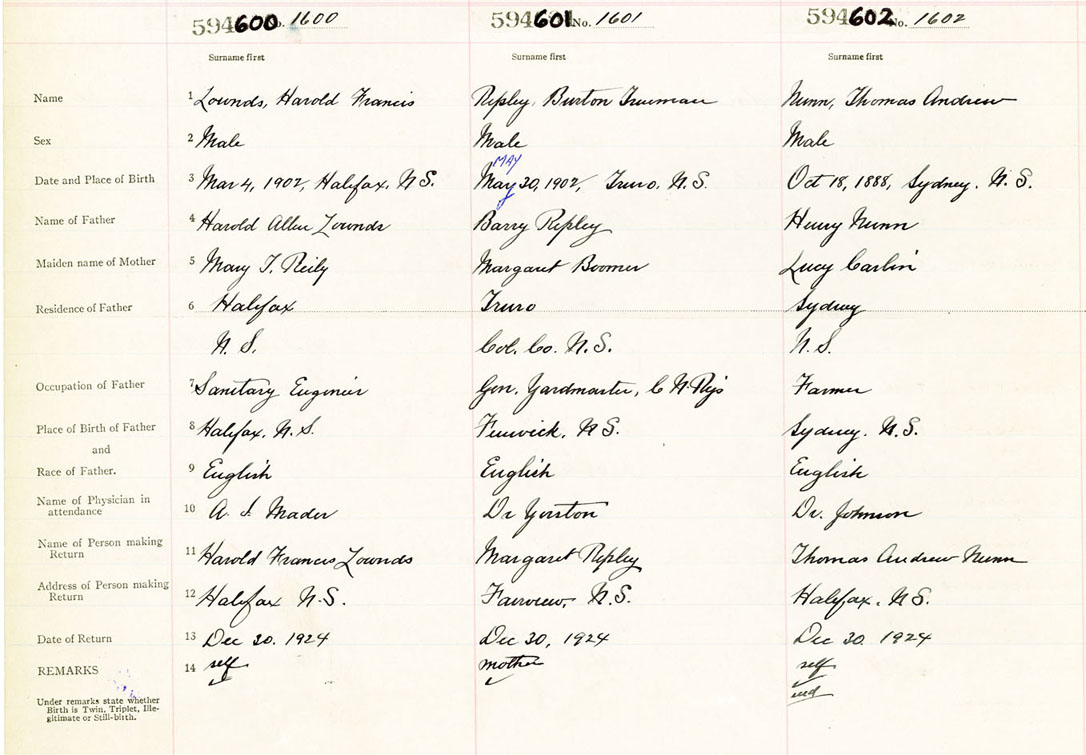 594600 No. 1600 594601 No. 1601 594602 No. 1602
Surname first Surname first Surname first
Name 1 Lownds, Harold Francis Ripley, Burton Trueman Nunn, Thomas Andrew
Sex 2 Male Male Male
MAY
Date and Place of Birth 3 Mar 4, 1902, Halifax, N.S. May 30, 1902, Truro, N.S. Oct 18, 1888, Sydney, N.S.
Name of Father 4 Harold Allen Lownds Barry Ripley Henry Nunn
Maiden name of Mother 5 Mary T. Reily Margaret Boomer Lucy Carlin
Residence of Father 6 Halifax Truro Sydney
N.S. Col. Co. N.S. N.S.
Occupation of Father 7 Sanitary Engineer Gen. Yardmaster, C N Rys Farmer
Place of Birth of Father 8 Halifax, N.S. Fenwick, N.S. Sydney, N.S.
and
Race of Father. 9 English English English
Name of Physician in
attendance 10 A. I. Mader Dr Yorston Dr. Johnson
Name of Person making
Return 11 Harold Francis Lownds Margaret Ripley Thomas Andrew Nunn
Address of Person making
Return 12 Halifax N.S. Fairview, N.S. Halifax, N.S.
Date of Return 13 Dec 30. 1924 Dec 30, 1924 Dec 30 1924
REMARKS 14 self mother self
Under remarks state whether
Birth is Twin, Triplet, Ille-
gitimate or Still-birth.